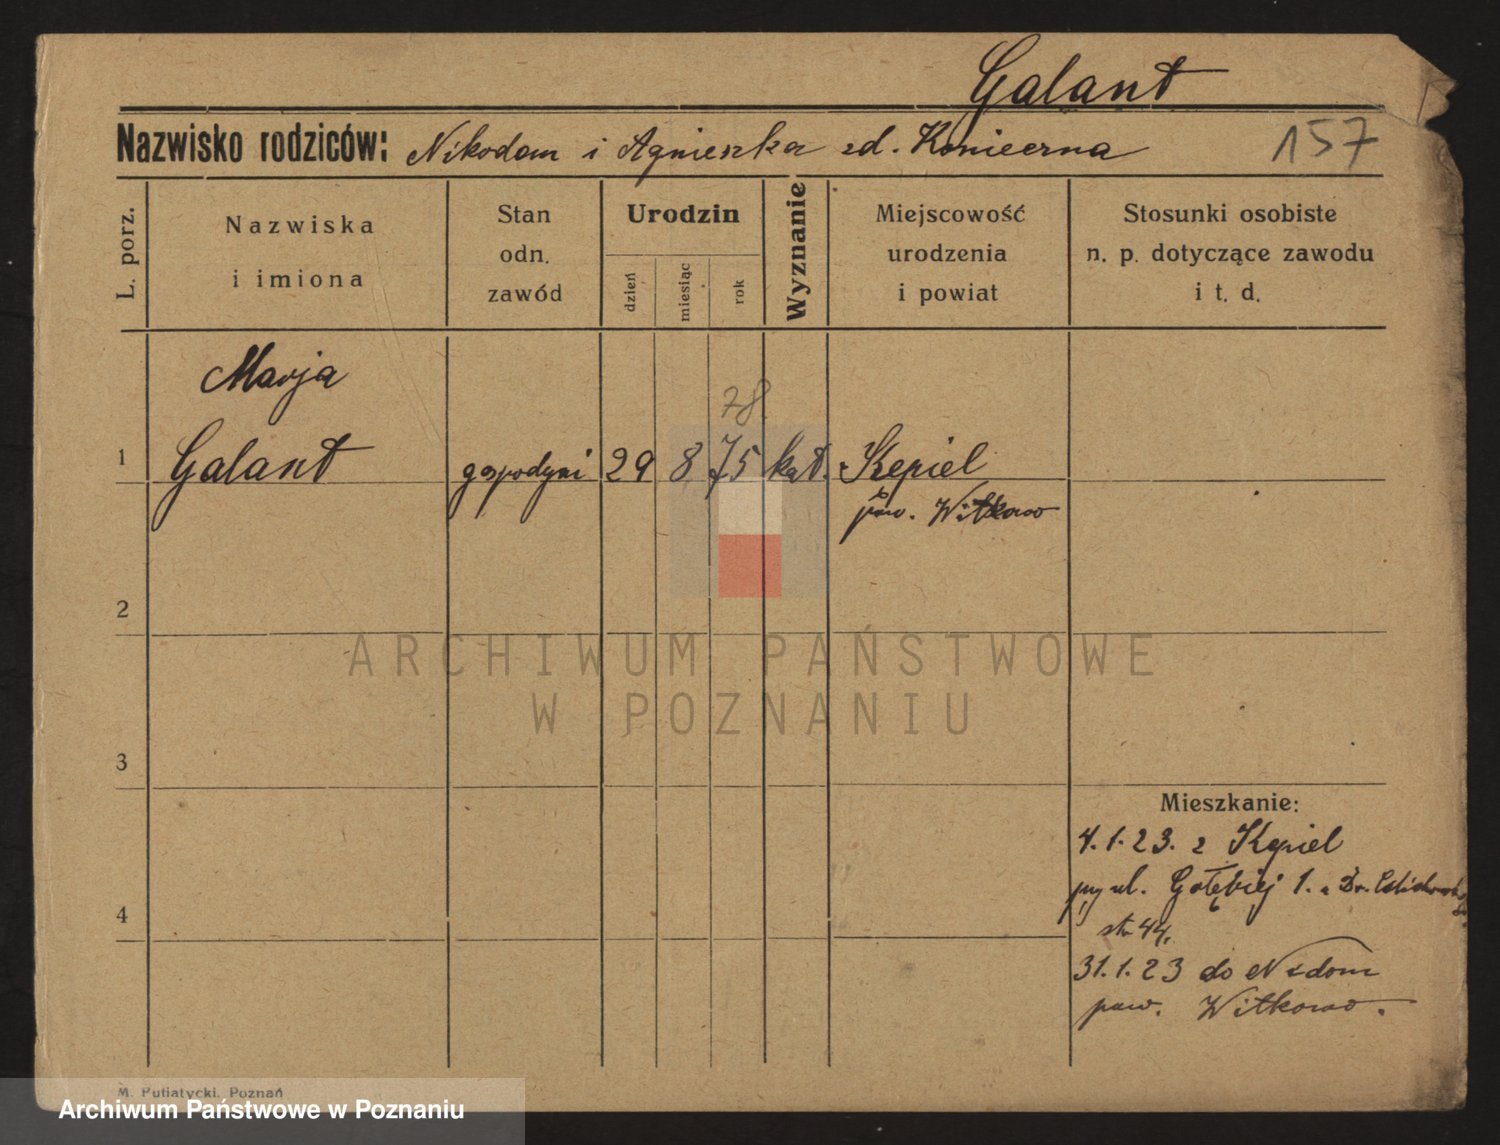 Galant
Nazwisko rodziców: Nikodem i Agnieszka zd. Konieczna 157
L. porz.
Nazwiska
i imiona
Stan
odn.
zawód
Urodzin
dzień
miesiąc
rok
Wyznanie
Miejscowość
urodzenia
i powiat
Stosunki osobiste
n. p. dotyczące zawodu
i t. d.
Marja
78
1 Galant gospodyni 29 8 75 kat. Kępiel
pow. Witkowo
2
3
4
Mieszkanie:
4.1.23. z Kępiel
przy ul. Gołębiej 1. u Dr.
str 44.
31.1.23 do
pow. Witkowo.
ARCHIWUM PAŃSTWOWE
W POZNANIU
M. Putiatycki, Poznań
Archiwum Państwowe w Poznaniu